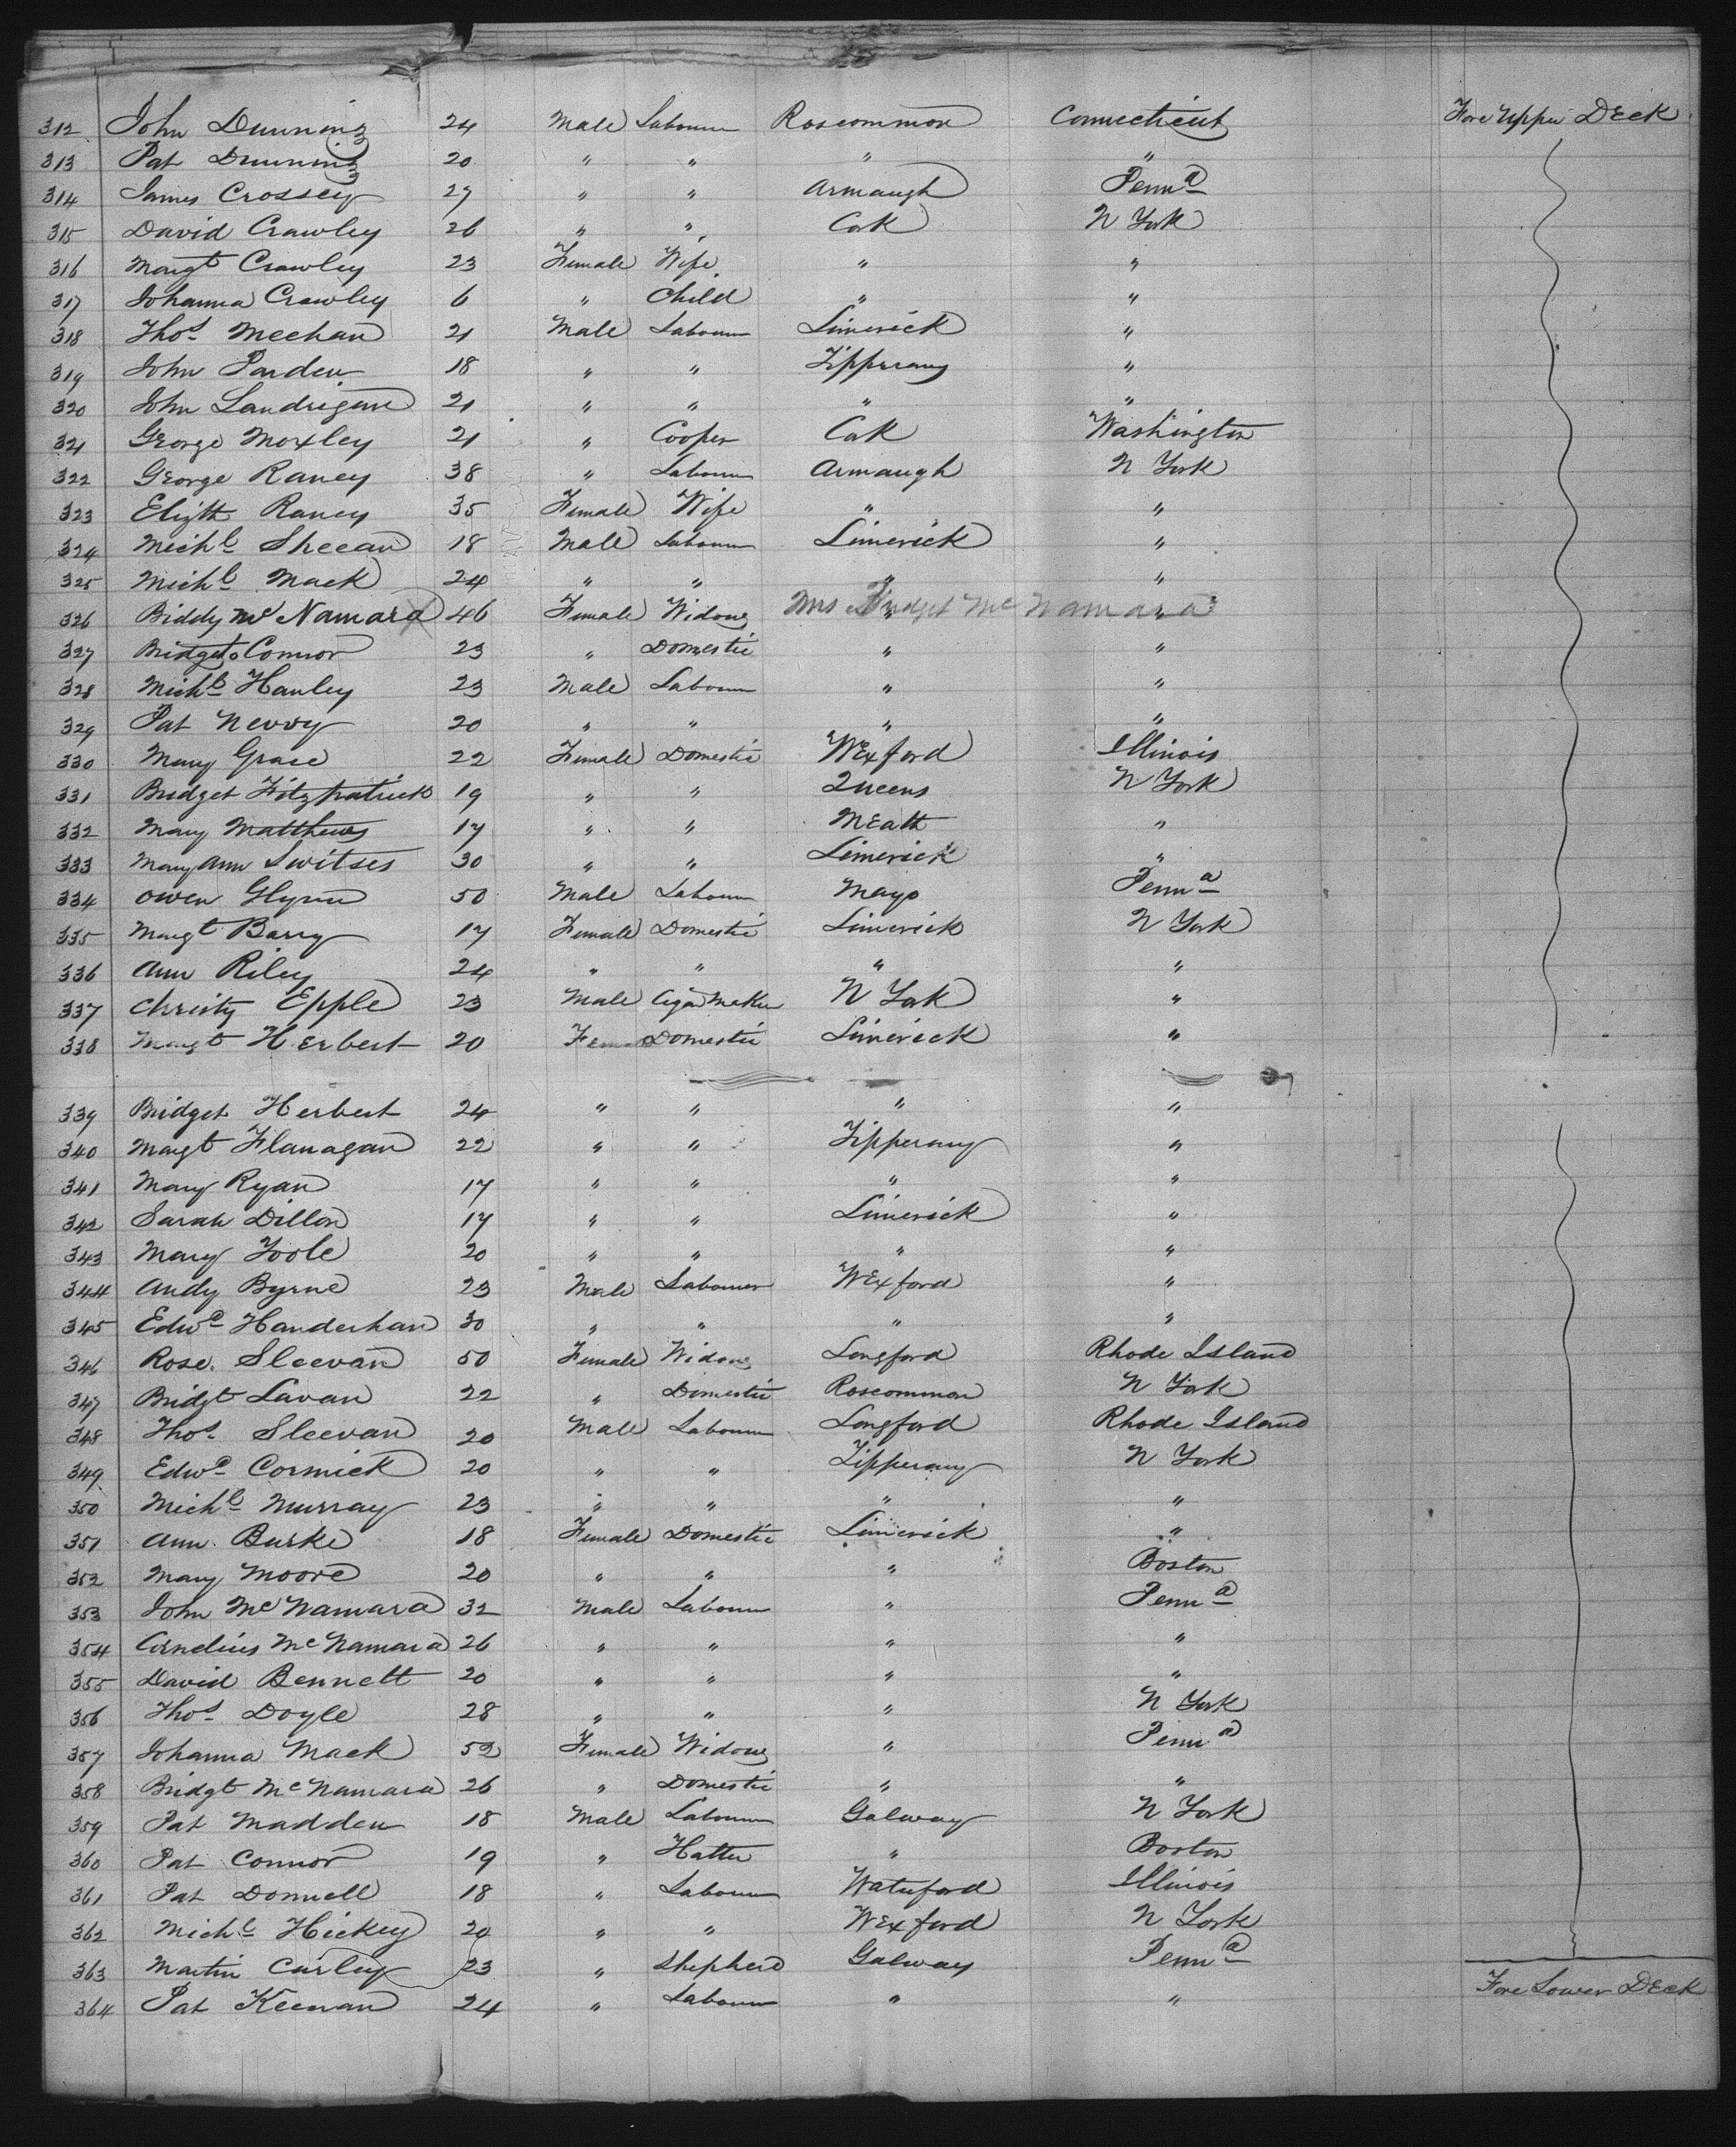 312 John Dunning 24 Male Labourer Roscommon Connecticut Fore Upper Deck
313 Pat Dunning 20 " " " "
314 James Crossey 27 " " Armaugh Penna
315 David Crawley 26 " " Cork N York
316 Margt Crawley 23 Female Wife " "
317 Johanna Crawley 6 " Child " "
318 Thos Meehan 21 Male Labourer Limerick "
319 John Parden 18 " " Tipperary "
320 John Landrigan 21 " " " "
321 George Moxley 21 " Cooper Cork Washington
322 George Raney 38 " Labourer Armaugh N York
323 Elizth Raney 35 Female Wife " "
324 Michl Sheean 18 Male Labourer Limerick "
325 Michl Mack 24 " " " "
326 Biddy McNamara X 46 Female Widow " Mrs Bridget McNamara "
327 Bridget oConnor 23 " Domestic " "
328 Michl Hanley 23 Male Labourer " "
329 Pat 20 " " " "
330 Mary Grace 22 Female Domestic Wexford Illinois
331 Bridget Fitzpatrick 19 " " Queens N York
332 Mary Matthews 17 " " Meath "
333 Mary Ann Switses 30 " " Limerick "
334 Owen Glynn 50 Male Labourer Mayo Penna
335 Margt Barry 17 Female Domestic Limerick N York
336 Ann Riley 24 " " " "
337 Christy Epple 23 Male Cigar Maker N York "
338 Margt Herbert 20 Female Domestic Limerick "
339 Bridget Herbert 24 " " " "
340 Margt Flanagan 22 " " Tipperary "
341 Mary Ryan 17 " " " "
342 Sarah Dillon 17 " " Limerick "
343 Mary Toole 20 " " " "
344 Andy Byrne 23 Male Labourer Wexford "
345 Edwd Handerhan 30 " " " "
346 Rose Sleevan 50 Female Widow Longford Rhode Island
347 Bridgt Lavan 22 " Domestic Roscommon N York
348 Thos Sleevan 20 Male Labourer Longford Rhode Island
349 Edwd Cormick 20 " " Tipperary N York
350 Michl Murray 23 " " " "
351 Ann Burke 18 Female Domestic Limerick "
352 Mary Moore 20 " " " Boston
353 John McNamara 32 Male Labourer " Penna
354 Cornelius McNamara 26 " " " "
355 David Bennett 20 " " " "
356 Thos Doyle 28 " " " N York
357 Johanna Mack 52 Female Widow " Penna
358 Bridgt McNamara 26 " Domestic " "
359 Pat Madden 18 Male Labourer Galway N York
360 Pat Connor 19 " Hatter " Boston
361 Pat Donnell 18 " Labourer Waterford Illinois
362 Michl Hickey 20 " " Wexford N York
363 Martin Curley 23 " Shepherd Galway Penna
364 Pat Keenan 24 " Labourer " " Fore Lower Deck